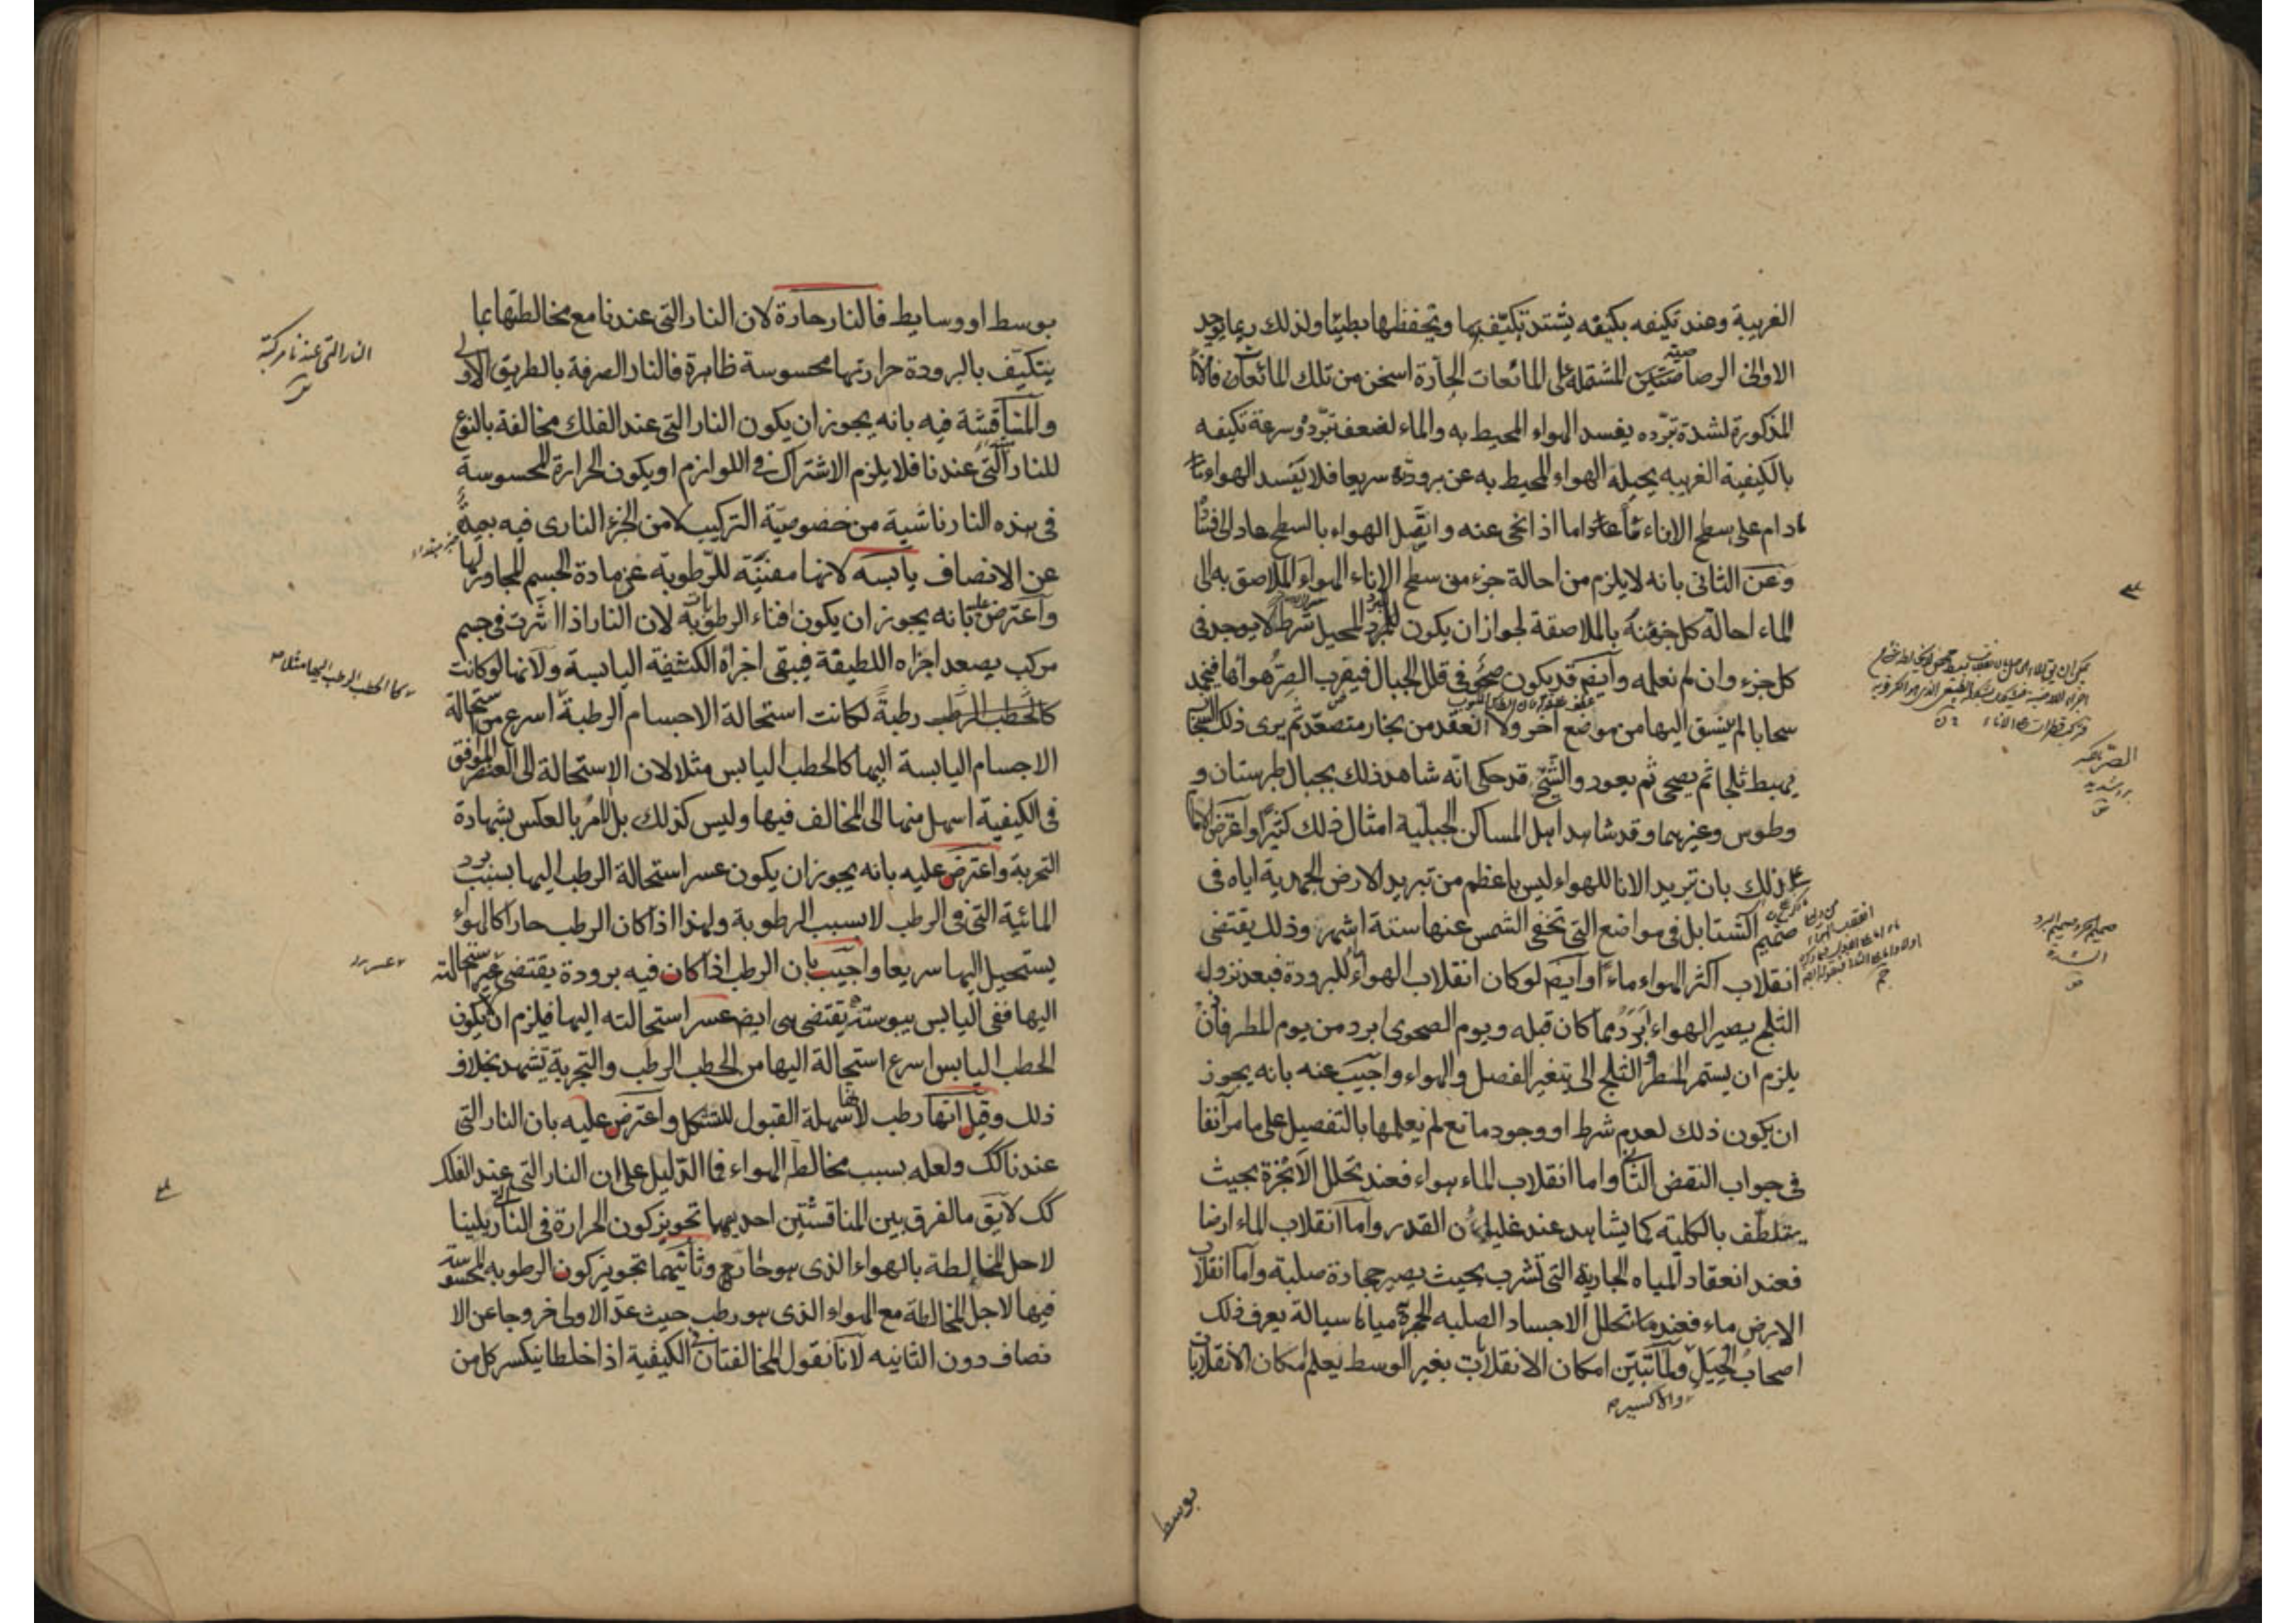 الغريبة وعند تكيفه بكيفه يشتد تكيفه بها وتحفظها بطيئا ولذلك ربما يوجد
الاوانى الرصاصية المشتملة على المائعات الحارة اسخن من تلك المائعات فالاناء
المذكورة لشدة تبرده يفسد الهواء المحيط به والماء لضعف تبرده وسرعة تكيفه
بالكيفية الغريبه يحيله الهواء المحيط به عن برودته سريعا فلا يفسد الهواء ما
دام على سطح الاناء ماء واما اذا نحى عنه واتصل الهواء بالسطح عاد الى فساده
وعن الثانى بانه لا يلزم من احالة جزء من سطح الاناء الهواء الملاصق به الى
الماء احالة كل جزء منه بالملاصقة لجواز ان يكون للبرد المحيل شرط لا يوجد فى
كل جزء وان لم نعلمه وايضم قد يكون صحو فى قلل الجبال فيضرب الصر هواءها فيجمد
سحابا لم ينسق اليها من موضع آخر ولا انعقد من بخار متصعد ثم يرى ذلك السحاب
يهبط ثلجا ثم يصحى ثم يعود والشيخ قد حكى انه شاهد ذلك بجبال طبرستان و
وطوس وغيرهما وقد شاهد اهل المساكن الجبلية امثال ذلك كثيرا واعترض الامام
على ذلك بان تبريد الانا للهواء ليس باعظم من تبريد الارض الجمدية اياه فى
صميم الشتا بل فى مواضع التى تخفى الشمس عنها ستة اشهر وذلك يقتضى
انقلاب اكثر الهواء ماء وايضم لو كان انقلاب الهواء للبرودة فبعد نزول
الثلج يصير الهواء ابرد مما كان قبله ويوم الصحو ابرد من يوم المطر فاذن
يلزم ان يستمر المطر والثلج الى يتغير الفصل والهواء واجيب عنه بانه يجوز
ان يكون ذلك لعدم شرط او وجود مانع لم نعلمها بالتفصيل على ما مر آنفا
فى جواب النقض الثانى واما انقلاب الماء هواء فعند تحلل الابخرة بحيث
يتلطف بالكلية كما يشاهد عند غليان القدر واما انقلاب الماء ارضا
فعند انعقاد المياه الجارية التى تشرب بحيث يصير حجارة صلبة واما انقلاب
الارض ماء فعند ما تحلل الاجساد الصلبه الحجرية مياها سيالة يعرف ذلك
اصحاب الحيل ولما تبين امكان الانقلابات بغير الوسط يعلم امكان الانقلابات
والاكسير
بوسط
الصر بالكسر
برد شديد
صميم الحر وصميم البرد
اشده
بوسط او وسايط فالنار حارة لان النار التى عندنا مع مخالطتها بما
يتكيف بالبرودة حرارتها محسوسة ظاهرة فالنار الصرفة بالطريق الاولى
والمناقشة فيه بانه يجوز ان يكون النار التى عند الفلك مخالفة بالنوع
للنار التى عندنا فلا يلزم الاشتراك فى اللوازم او يكون الحرارة المحسوسة
فى هذه النار ناشية من خصوصية التركيب لا من الجزء النارى فيه بعيدة
عن الانصاف يابسه لانها مفنية للرطوبة عن مادة الجسم المجاور لها
واعترض عليه بانه يجوز ان يكون افناء الرطوبة لان النار اذا اثرت فى جسم
مركب يصعد اجزاه اللطيفة فيبقى اجزاه الكثيفة اليابسة ولانها لو كانت
كالحطب الرطب رطبة لكانت استحالة الاجسام الرطبة اسرع من استحالة
الاجسام اليابسة اليها كالحطب اليابس مثلا لان الاستحالة الى العنصر الموافق
فى الكيفية اسهل منها الى المخالف فيها وليس كذلك بل الامر بالعكس بشهادة
التجربة واعترض عليه بانه يجوز ان يكون عسر استحالة الرطب اليها بسبب برد
المائية التى فى الرطب لا بسبب الرطوبة ولهذا اذا كان الرطب حارا كالهواء
يستحيل اليها سريعا واجيب بان الرطب اذا كان فيه برودة يقتضى عسر استحالته
اليها ففى اليابس يبوسته يقتضى هى ايضا عسر استحالته اليها فيلزم ان يكون
الحطب اليابس اسرع استحالة اليها من الحطب الرطب والتجربة تشهد بخلاف
ذلك وقيل انها رطب لانها سهلة القبول للتشكل واعترض عليه بان النار التى
عندنا كك ولعله بسبب مخالطة الهواء فما الدليل على ان النار التى عند الفلك
كك لا يق ما الفرق بين المناقشتين احديهما تجويز كون الحرارة فى النار التى يلينا
لاجل المخالطة بالهواء الذى هو حار وثانيهما تجويز كون الرطوبه المحسوسة
فيها لاجل المخالطة مع الهواء الذى هو رطب حيث عد الاولى خروجا عن الا
نصاف دون الثانيه لانا نقول المخالفتان فى الكيفية اذا خلطا ينكسر كل من
النار التى عندنا مركبة
كالحطب الرطب اليها مثلا
عسر